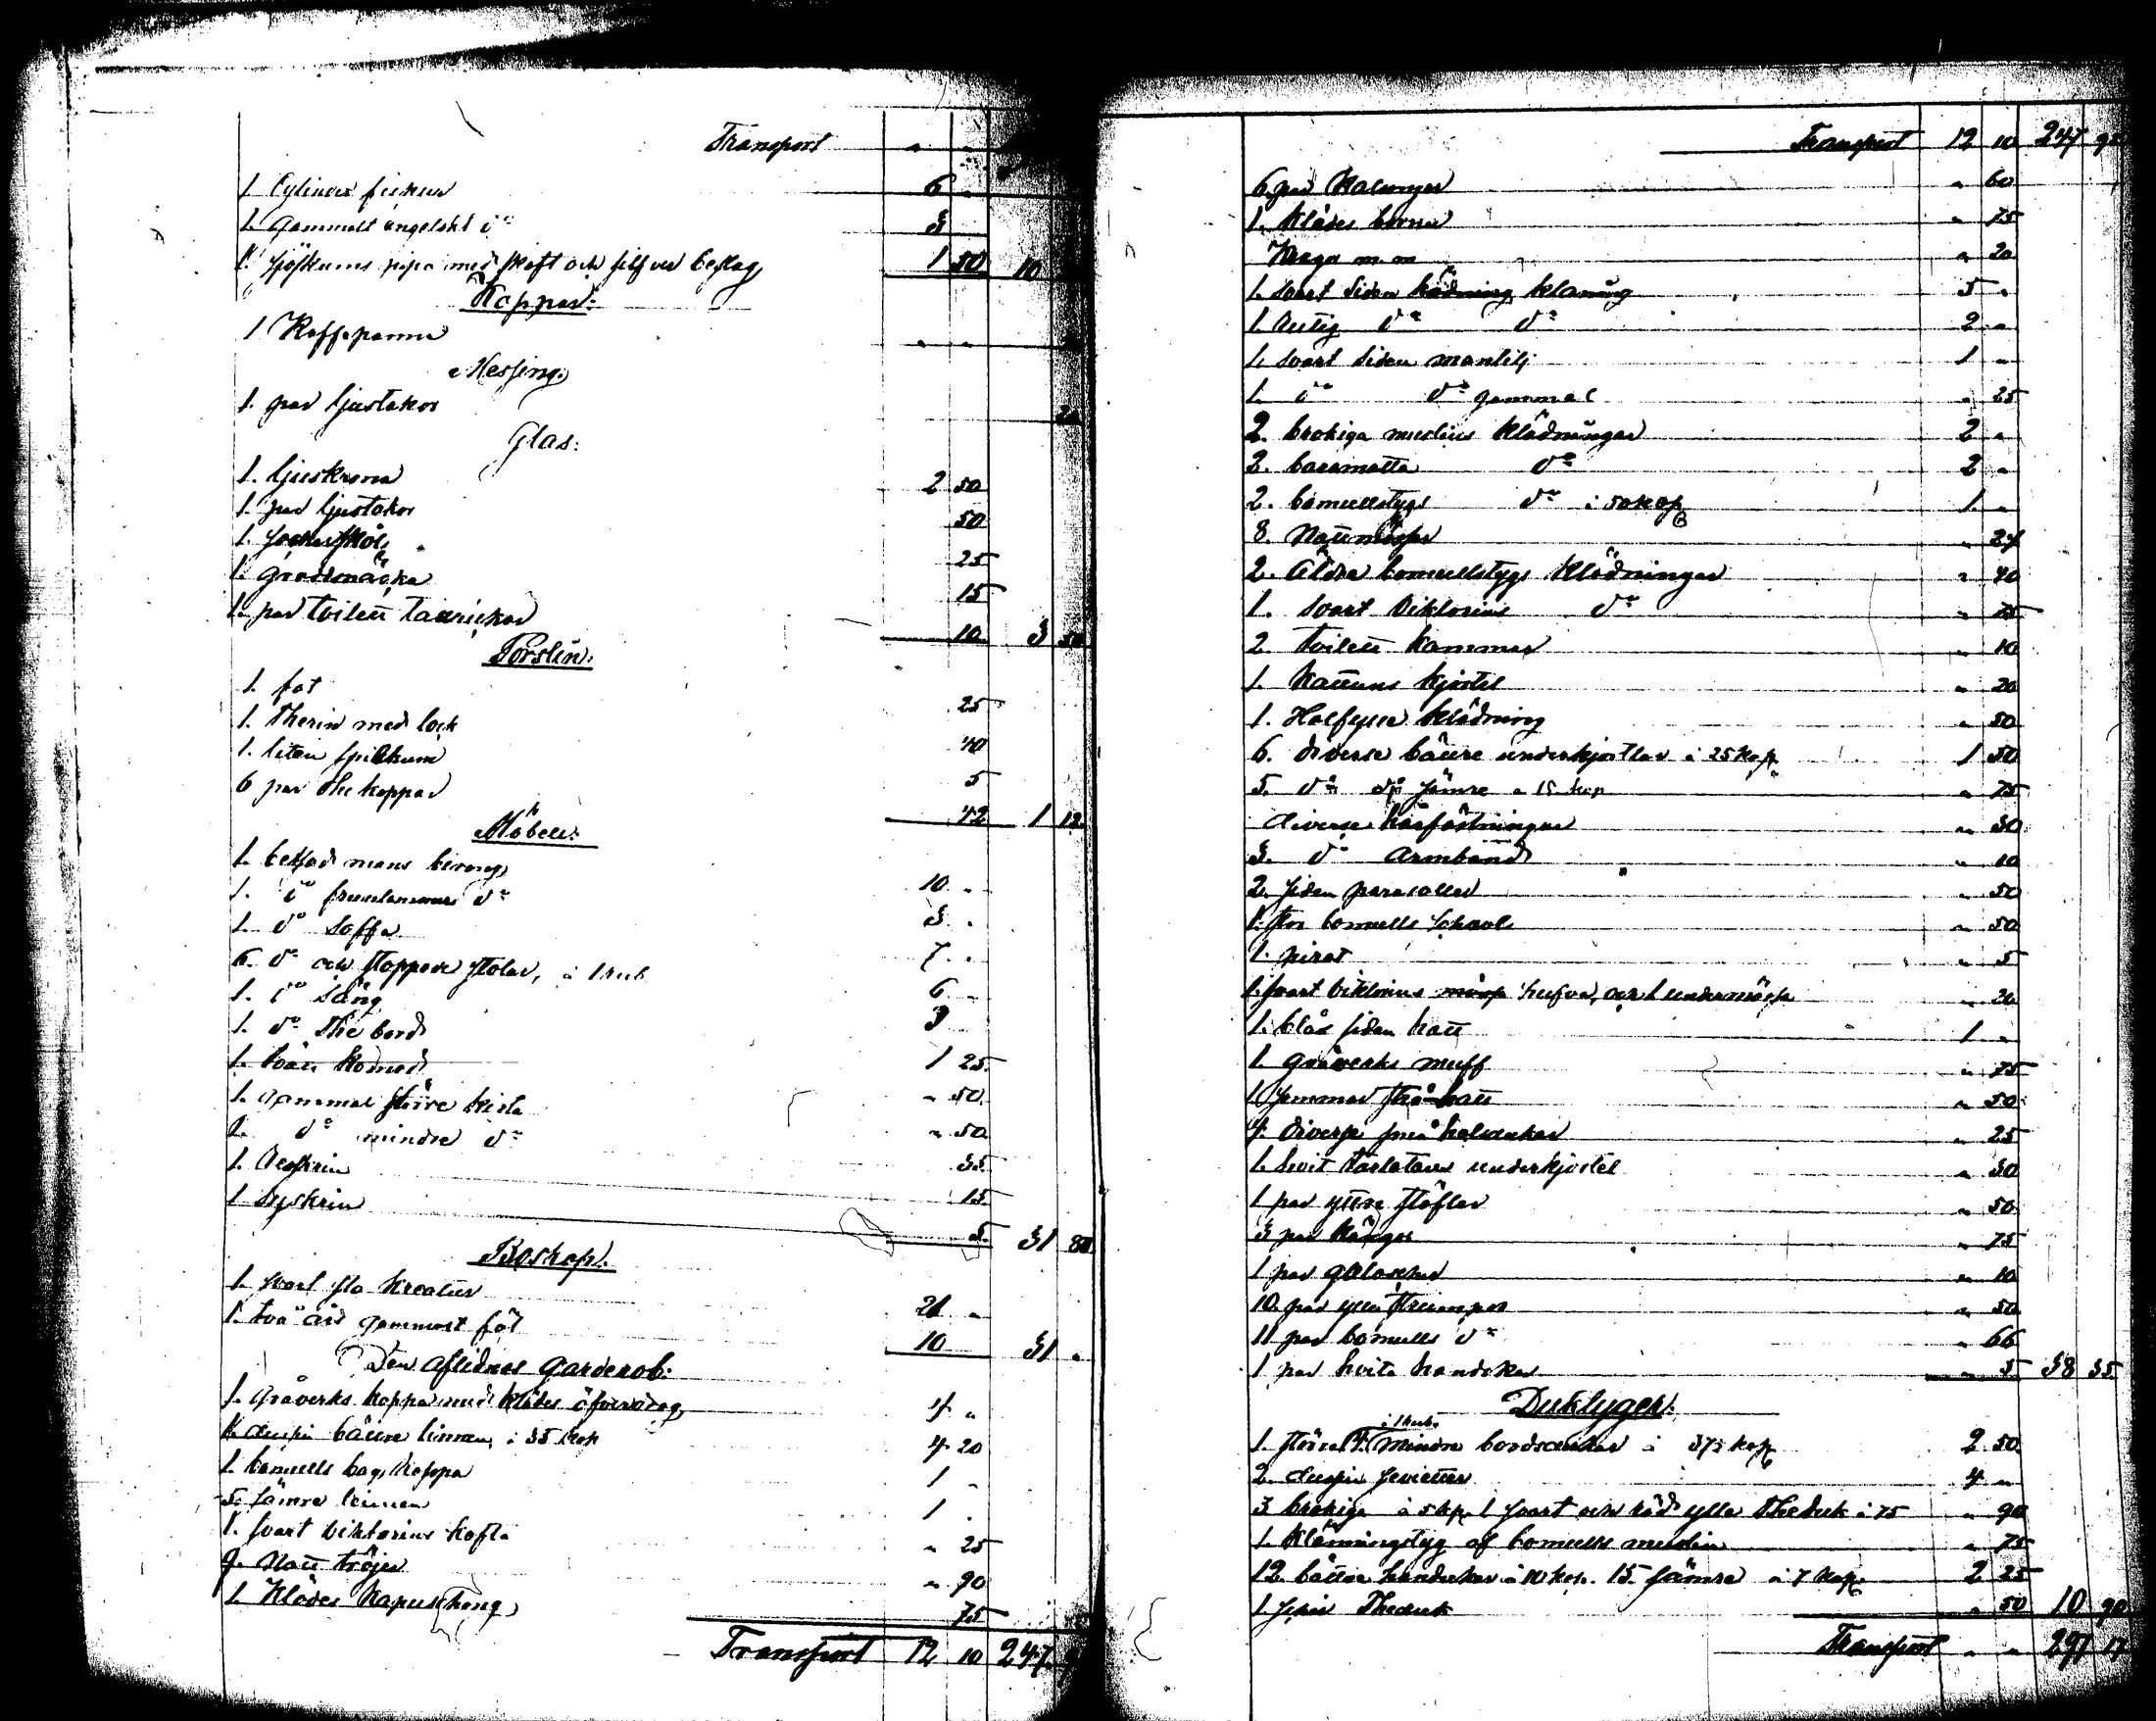 Transport " "
1. Cylinder fickur 6 "
1. Gammalt ängelskt do 3
1. sjöskums pipa med skaft och silfver beslag 1 50 10
Koppar:
1 Kaffepanna " "
Messing:
1. par ljustakor 20
Glas:
1. ljuskrona 2 50
1. par ljustakor 50
1. sockerskål 25
1. gräddsnäcka 15
1. par toilett 10 3 50
Porslin:
1. fat 25
1. Therin med lock 40
1. liten spilkum 5
6 par The koppar 42 1 12
Möbler:
1. betsad mans birong 10 "
1. do fruntimmers do 3 "
1. do Soffa 7 "
6. do och stoppade stolar, à 1 rub 6 "
1. do Säng 3
1. do The bord 1 25
1. tvätt komod " 50
1. gammal större kista " 50
1. do mindre do 35
1. 15
1 Syskrin 5 31 80
Boskap:
1. svart sto kreatur 21 "
1. två års gammalt föl 10 31 "
Den aflidnes garderob:
1. Gråverks kappa med klädes öfverdrag 4 "
1. dussin bättre linnen, à 35 kop 4 20
1. bomulls kappa 1 "
5. sämre linnen 1 "
1. svart viktorins kofta " 25
9. Natt tröjor " 90
1. Klädes Kapuschong 75
Transport 12 10 247
Transport 12 10 247 92
6. par Kalsonger " 60
1. Klädes " 75
Kragar m m " 20
1. svart Siden klädning 5 "
1. do do 2 "
1. svart Siden mantilj 1 "
1. do do gammal " 25
2. brokiga muslins klädningar 2 "
2. do 2 "
2. bomullstygs do à 50 kop 1 "
8. Nattmössor " 24
2. Äldre bomullstygs klädningar " 40
1. Svart Viktorins do " 75
2 toilett kammar " 10
1. Kattuns kjortel " 20
1. Halfylle klädning " 50
6. diverse bättre underkjortlar à 25 kop 1 50
5. do do sämre à 15 kop " 75
diverse hårfästningar " 30
3. do Armband " 10
2. siden parasoller " 50
1. stor bomulls schavl " 50
1. " 5
1. svart viktorins hufva, och 1 undermössa " 20
1. blå siden hatt 1 "
1. gråverks muff " 75
1 sommar stråhatt " 50
4. diverse små halsdukar " 25
1. hvit tarlatans underkjortel " 30
1 par yttre stöflar " 50
3 par Kängor " 75
1 par galoscher " 10
10. par ylle strumpor " 50
11 par bomulls do " 66
1 par hvita handskar " 5 38 35
Duktyger:
à 1 rub.
1. större 4. mindre bordsdukar à 37½ kop 2 50
2. dussin servietter 4 "
3 brokiga à 5 kp. 1 svart och röd ylle Theduk à 75 " 90
1. Klänningstyg af bomulls muslin " 75
12. bättre handukar à 10 kop. 15. sämre à 7 kop. 2 25
1 Theduk " 50 10 90
Transport " " 297 17